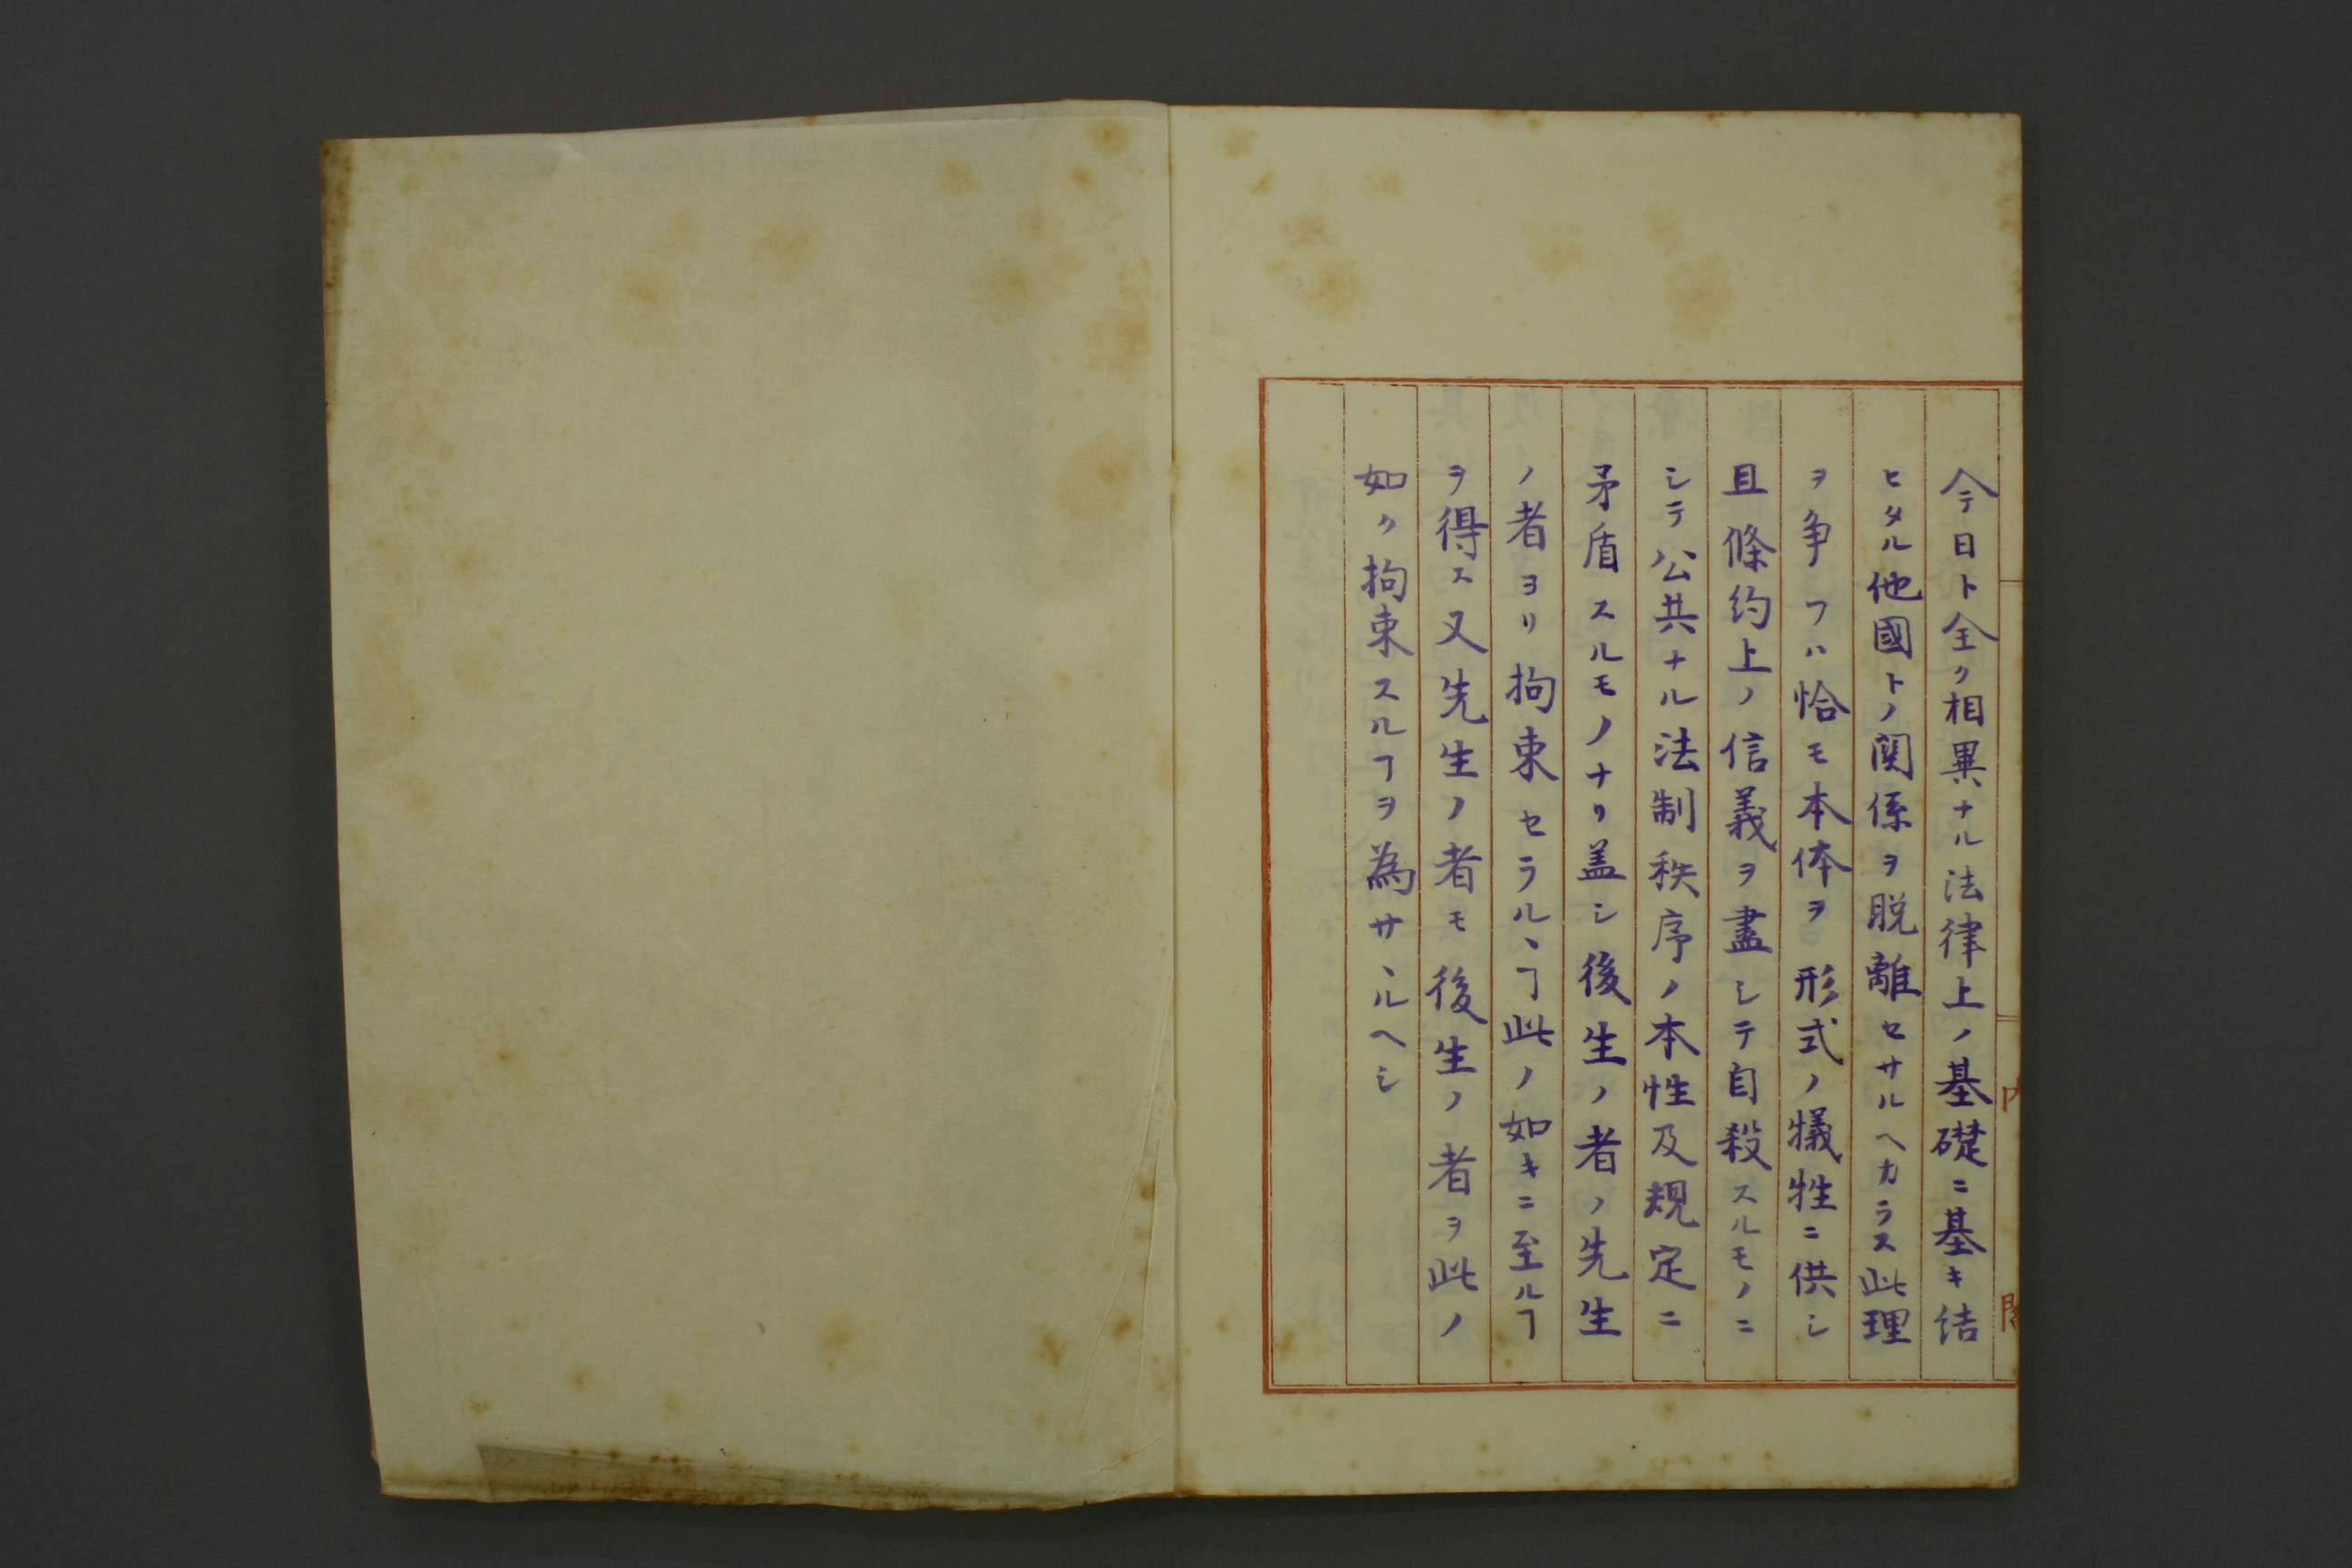 今日ト全ク相異ナル法律上ノ基礎ニ基キ結
ヒタル他國トノ関係ヲ脱離セサルヘカラス此理
ヲ争フハ恰モ本体ヲ形式ノ犠牲ニ供シ
且條約上ノ信義ヲ盡シテ自殺スルモノニ
シテ公共ナル法制秩序ノ本性及規定ニ
矛盾スルモノナリ盖シ後生ノ者ノ先生
ノ者ヨリ拘束セラルヽヿ此ノ如キニ至ルヿ
ヲ得ス又先生ノ者モ後生ノ者ヲ此ノ
如ク拘束スルヿヲ為サヽルヘシ
内閣